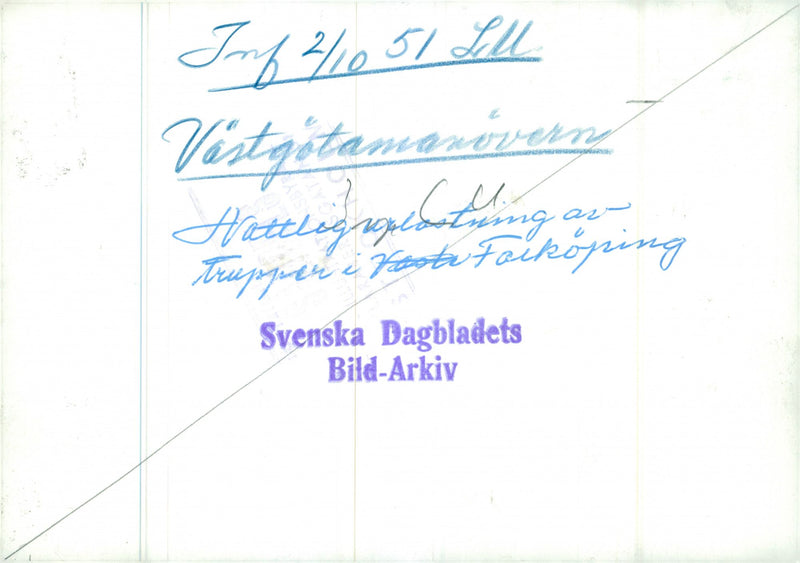 Inf 2/10 51 LM
Västgötamanövern
Nattlig urlastning av
trupper i Västs Falköping
Svenska Dagbladets
Bild-Arkiv